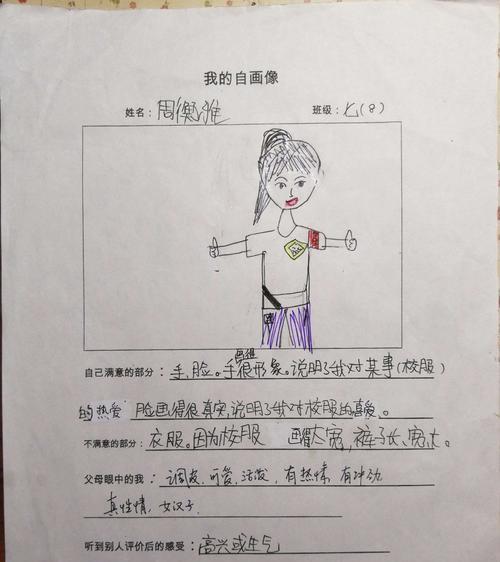 我的自画像
姓名：周衡雅 班级：七(8)
自己满意的部分：手、脸。手画得很形象。说明了我对某事(校服)
的热爱 脸画得很真实,说明了我对校服的真爱。
不满意的部分：衣服。因为校服 画得太宽,裤子长、宽大。
父母眼中的我：调皮、可爱、活泼、有热情、有冲动
真性情、女汉子.
听到别人评价后的感受：高兴或生气